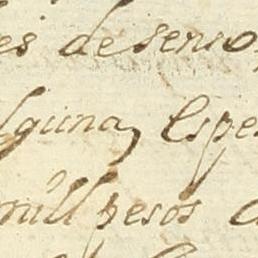 es de senso
lguna, Espe
mill pesos d